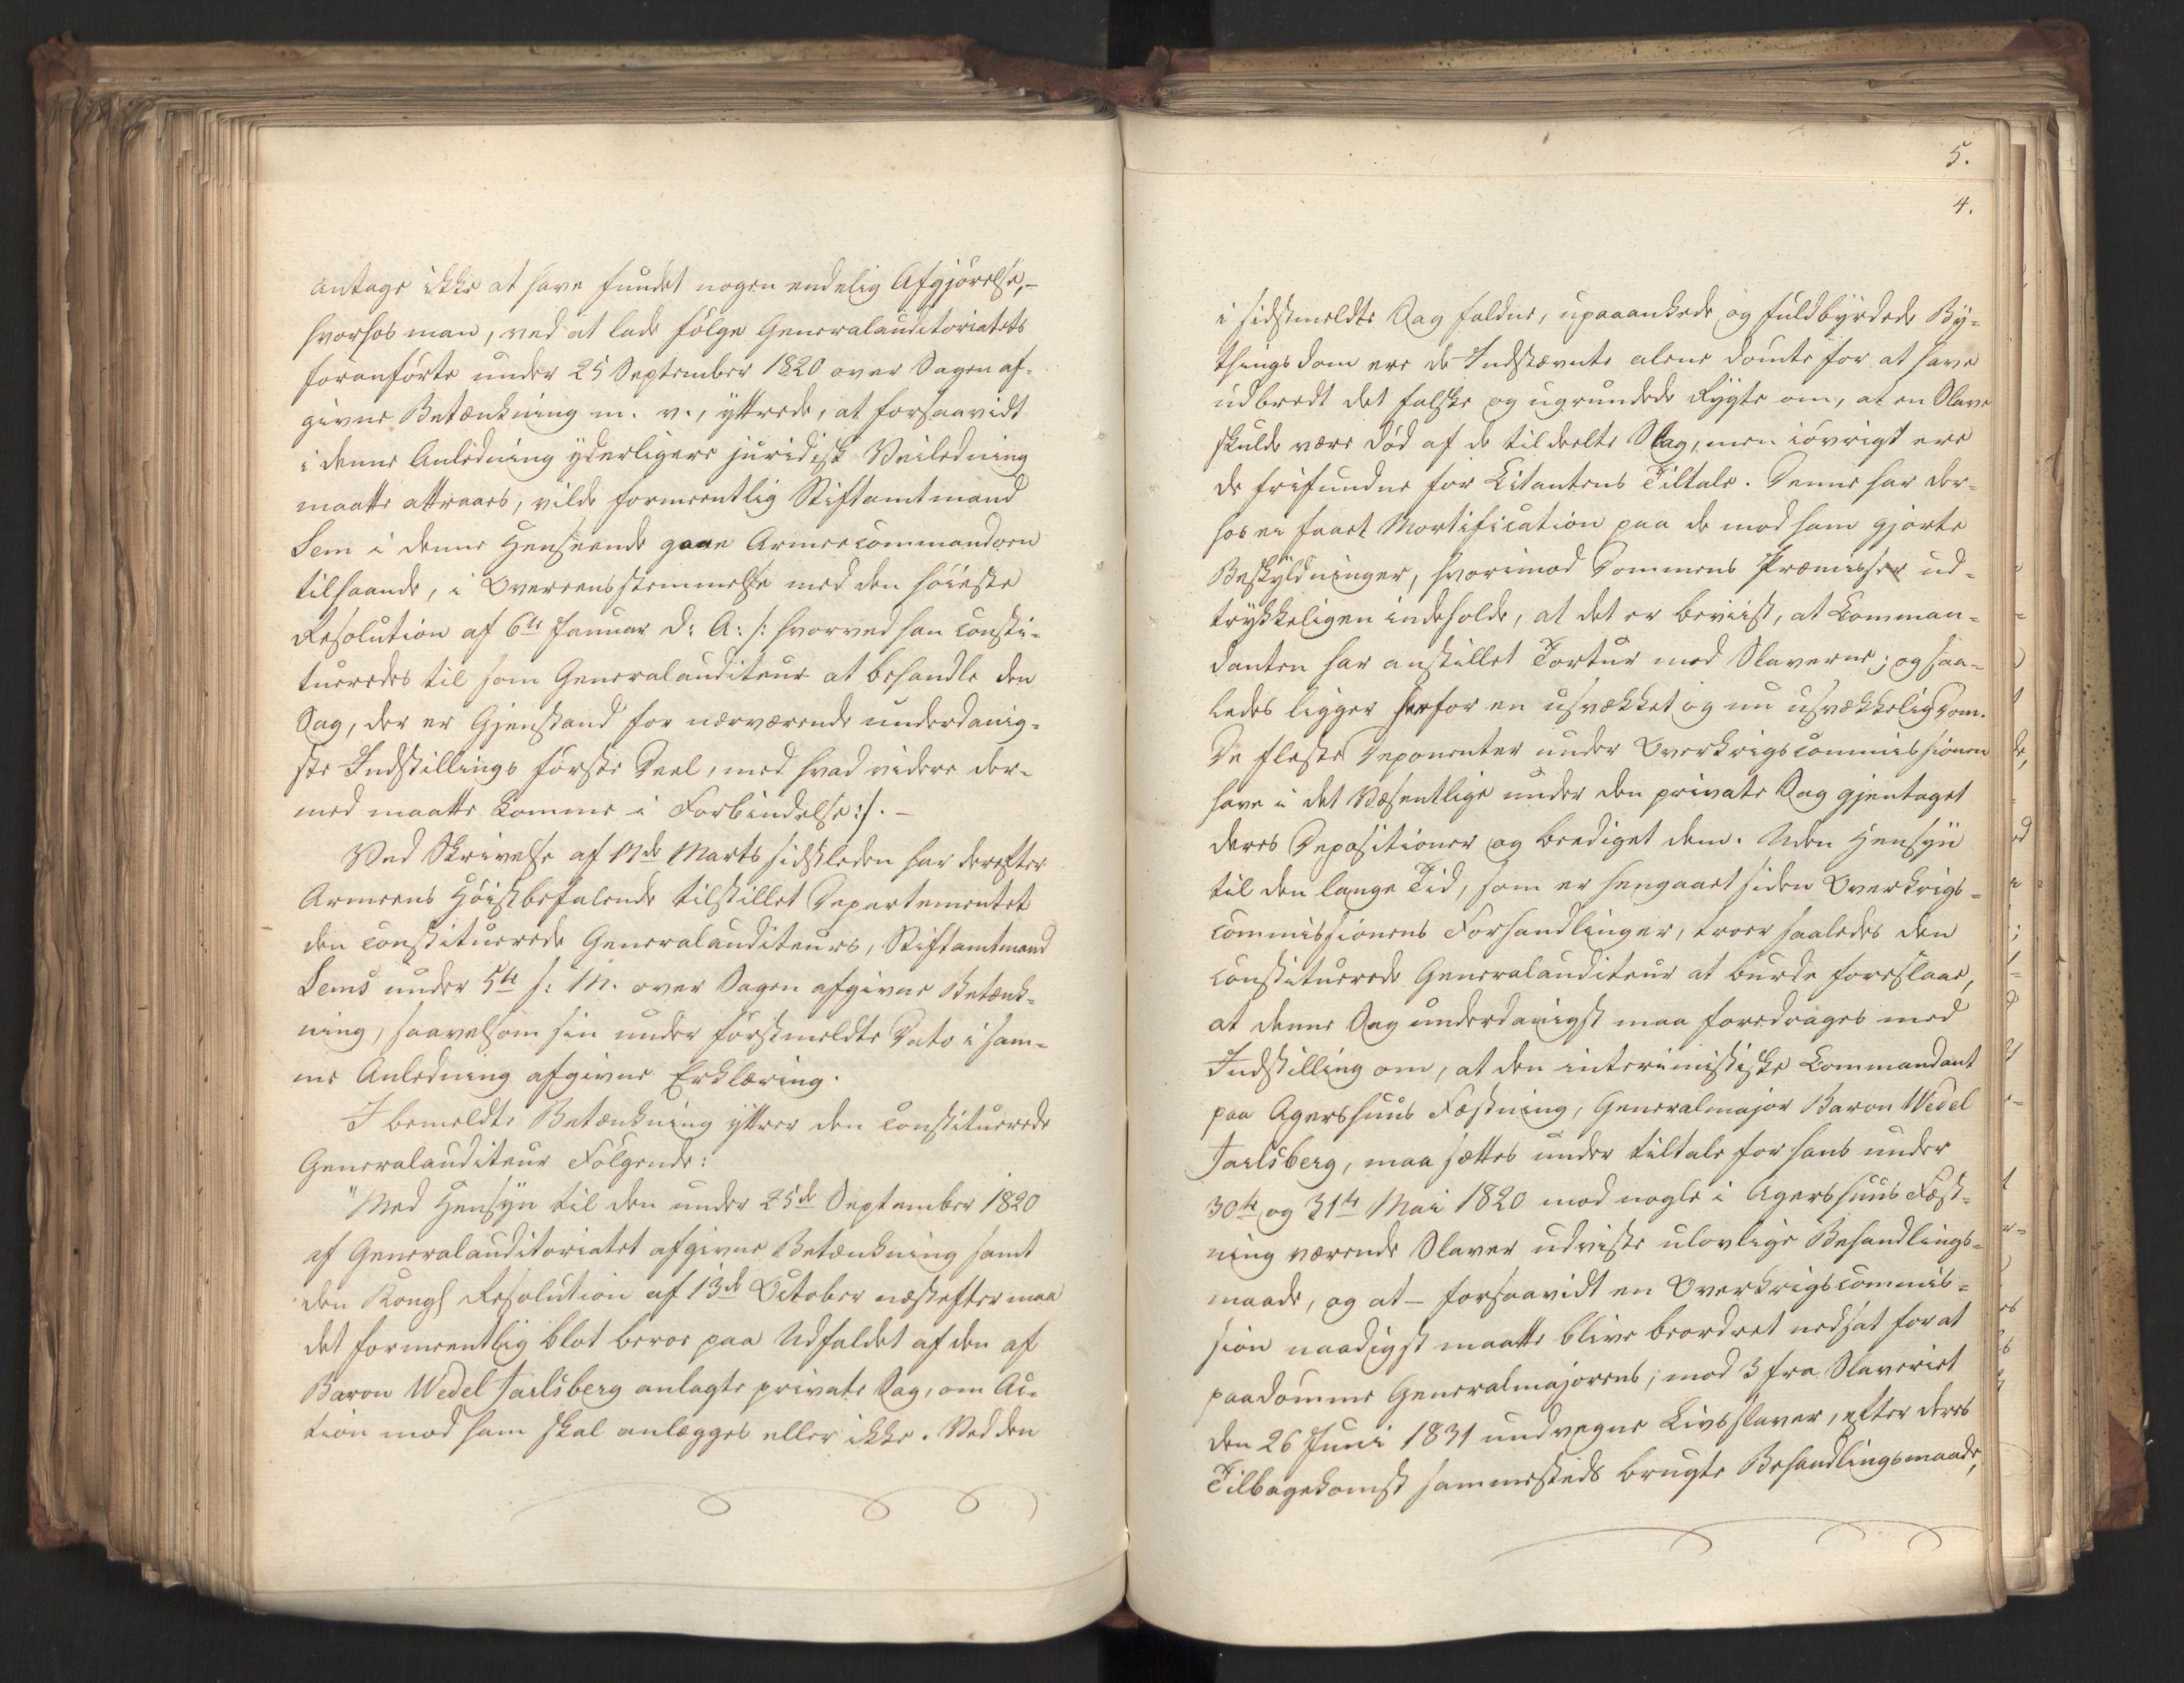 antage ikke at have fundet nogen endelig Afgjörelse,-
hvorhos man, ved at lade fölge Generalauditoriatets
foranförte under 25 September 1820 over Sagen af-
givne Betænkning m. v., yttrede, at forsaavidt
i denne Anledning yderligere juridisk Veiledning
maatte attraaes, vilde formeentlig Stiftamtmand
Sem i denne Henseende gaae Armeecommandoen
tilhaande, i Overeensstemmelse med den höieste
Resolution af 6te Januar d: A: /: hvorved han consti-
tueredes til som Generalauditeur at behandle den
Sag, der er Gjenstand for nærværende underdanig-
ste Indstillings förste Deel, med hvad videre der-
med maatte komme i Forbindelse :/. -
Ved Skrivelse af 17de Marts sidstleden har derefter
Armeens Höistbefalende tilstillet Departementet
den constituerede Generalauditeurs, Stiftamtmand
Sems under 5te s: M. over Sagen afgivne Betænk-
ning, saavelsom sin under förstmeldte Dato i sam-
me Anledning afgivne Erklæring.
I bemeldte Betænkning yttrer den constituerede
Generalauditeur Fölgende:
"Med Hensyn til den under 25de September 1820
af Generalauditoriatet afgivne Betænkning samt
den Kongl Resolution af 13de October næstefter maa
det formeentlig blot beroe paa Udfaldet af den af
Baron Wedel Jarlsberg anlagte private Sag, om Ac-
tion mod ham skal anlægges eller ikke. Ved den
5.
4.
i sidstmeldte Sag faldne, upaaankede og fuldbyrdede By-
thingsdom ere de Indstævnte alene dömte for at have
udbredt det falske og ugrundede Rygte om, at en Slave
skulde være död af de tildeelte Slag, men iövrigt ere
de frifundne for Citantens Tiltale. Denne har der-
hos ei faaet Mortification paa de mod ham gjorte
Beskyldninger, hvorimod Dommens Præmisser ud-
trykkeligen indeholde, at det er beviist, at Comman-
danten har anstillet Tortur med Slaverne; og saa-
ledes ligger herfor en usvækket og nu usvækkelig Dom.
De fleste Deponenter under Overkrigscommissionen
have i det Væsentlige under den private Sag gjentaget
deres Depositioner og beediget dem. Uden Hensyn
til den lange Tid, som er hengaaet siden Overkrigs-
commissionens Forhandlinger, troer saaledes den
constituerede Generalauditeur at burde foreslaae,
at denne Sag underdanigst maa foredrages med
Indstilling om, at den interimistiske Commandant
paa Agershuus Fæstning, Generalmajor Baron Wedel
Jarlsberg, maa sættes under tiltale for hans under
30te og 31te Mai 1820 mod nogle i Agershuus Fæst-
ning værende Slaver udviste ulovlige Behandlings-
maade, og at - forsaavidt en Overkrigscommis-
sion naadigst maatte blive beordret nedsat for at
paadömme Generalmajorens, mod 3 fra Slaveriet
den 26 Juni 1831 undvegne Livsslaver, efter deres
Tilbagekomst sammesteds brugte Behandlingsmaade,